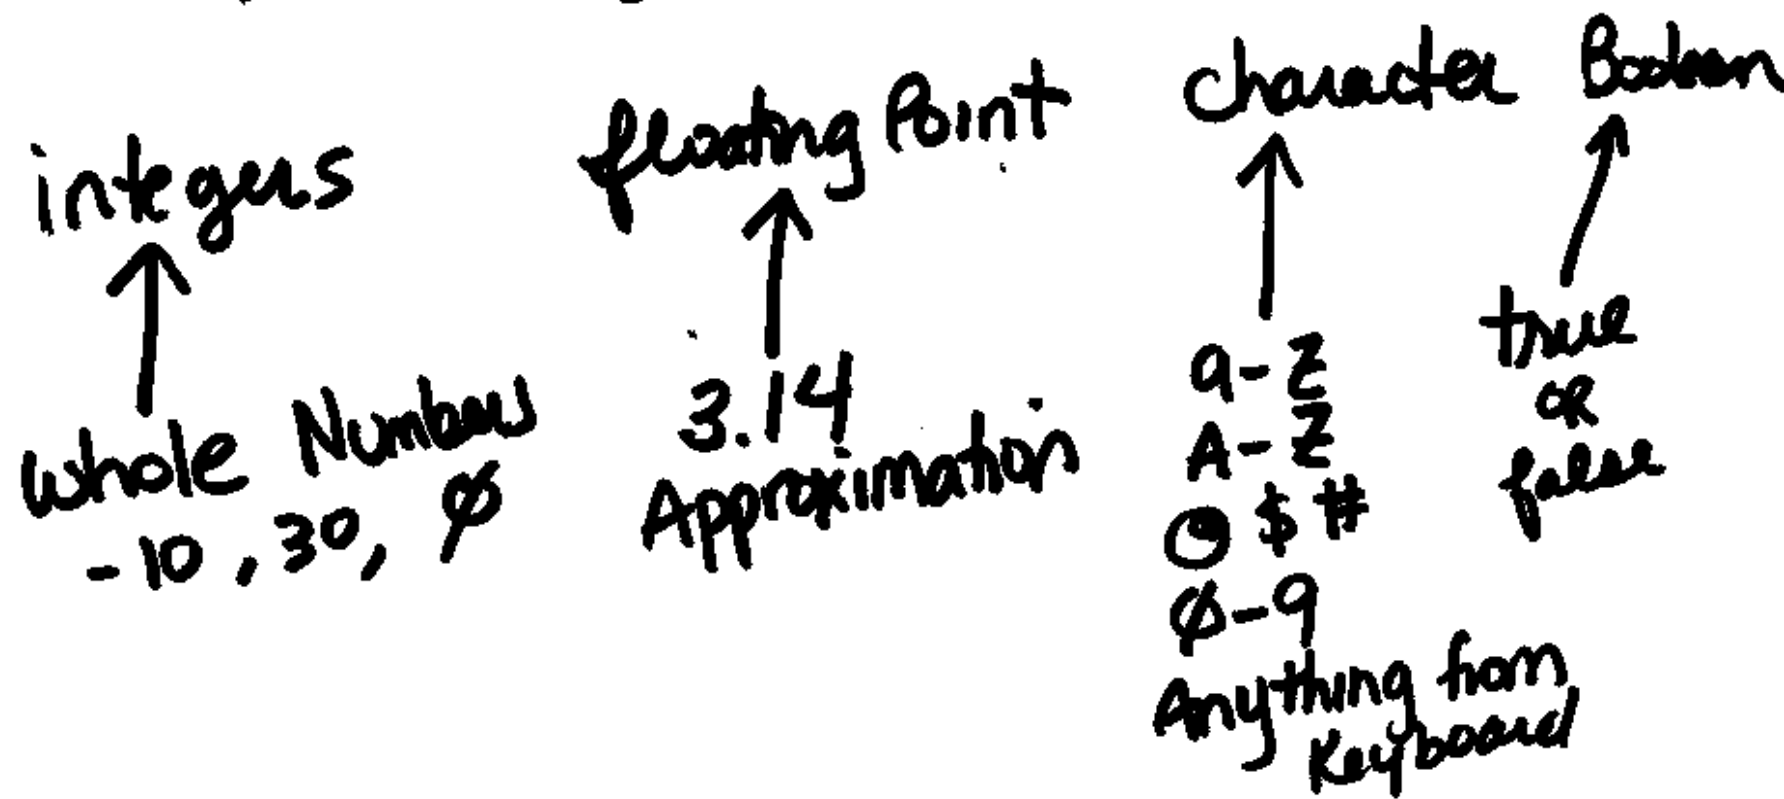 integers
whole Numbers
-10, 30, Ø
floating Point
3.14
Approximation
character
a-z
A-Z
@ $ #
Ø-9
Anything from
Keyboard
Boolean
true
or
false